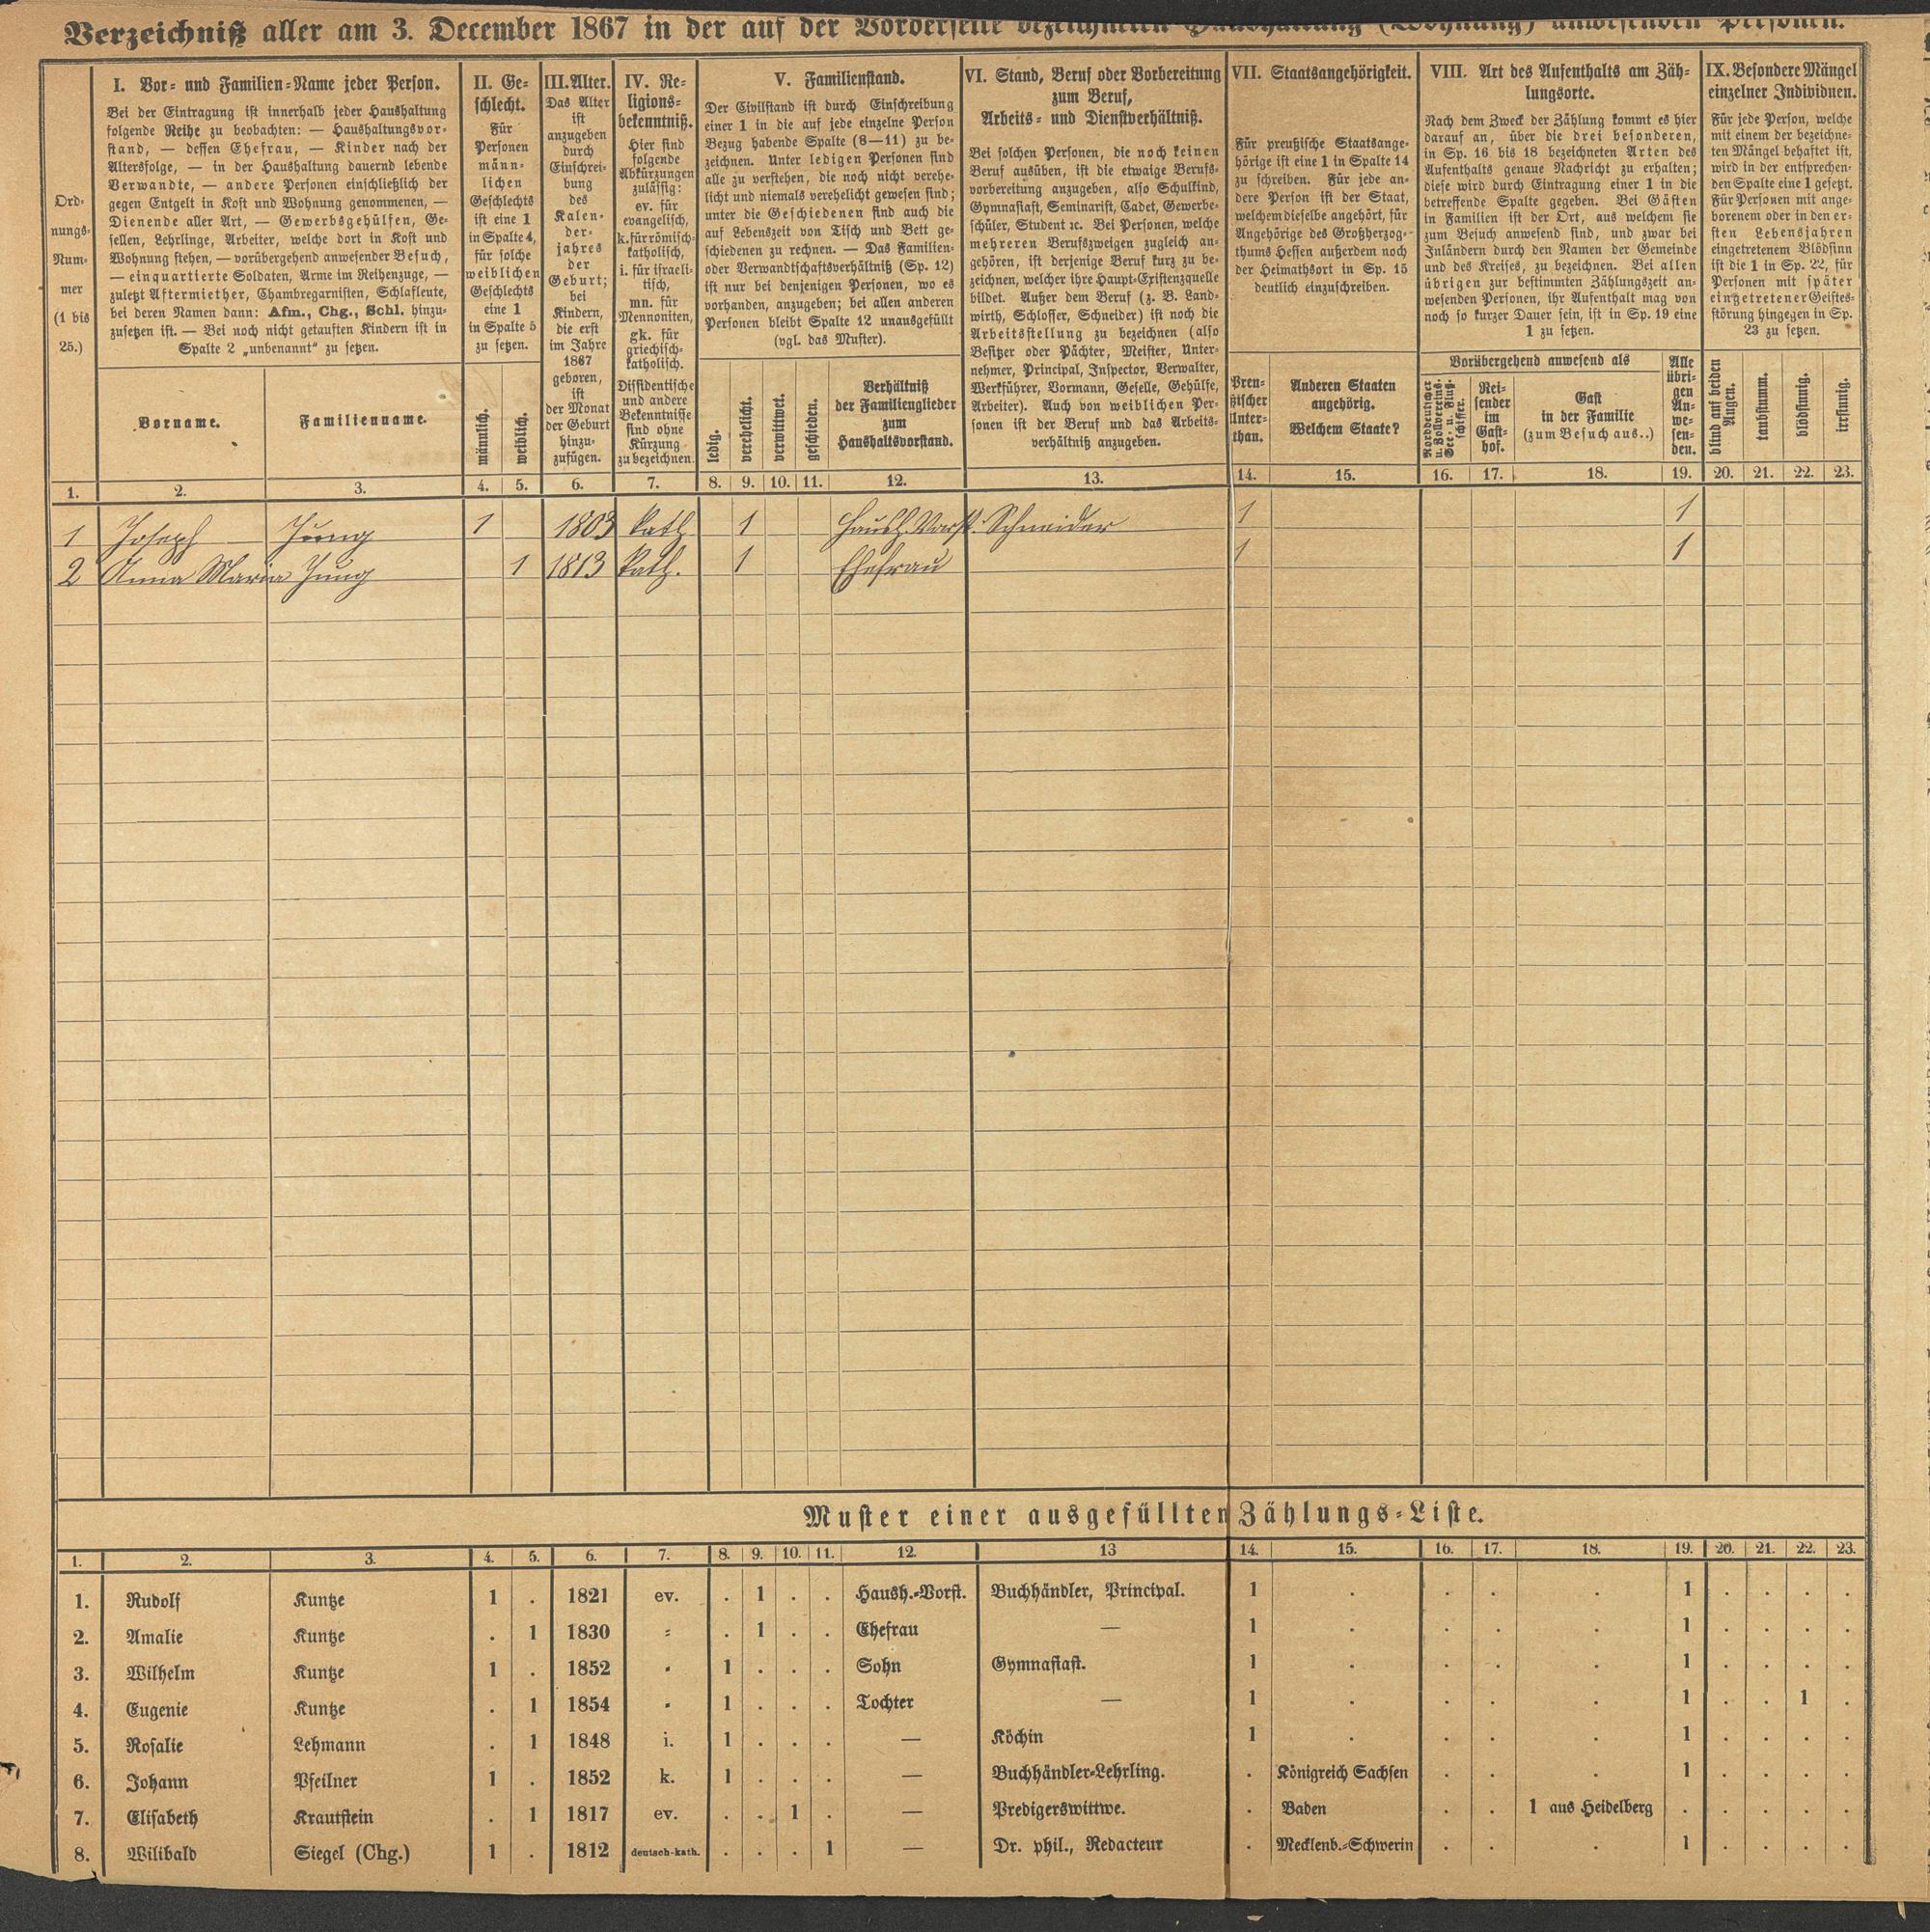 Verzeichniß aller am 3. December 1867 in der auf der Vorderseite bezeichneten Haushaltung (Wohnung) anwesenden Personen.
Ord-
nungs-
Num-
mer
(1 bis
25.)
I. Vor- und Familien-Name jeder Person.
Bei der Eintragung ist innerhalb jeder Haushaltung
folgende Reihe zu beobachten: — Haushaltungsvor-
stand, — dessen Ehefrau, — Kinder nach der
Altersfolge, — in der Haushaltung dauernd lebende
Verwandte, — andere Personen einschließlich der
gegen Entgelt in Kost und Wohnung genommenen, —
Dienende aller Art, — Gewerbsgehülfen, Ge-
sellen, Lehrlinge, Arbeiter, welche dort in Kost und
Wohnung stehen, — vorübergehend anwesender Besuch,
— einquartierte Soldaten, Arme im Reihenzuge, —
zuletzt Aftermiether, Chambregarnisten, Schlafleute,
bei deren Namen dann: Afm., Chg., Schl. hinzu-
zusetzen ist. — Bei noch nicht getauften Kindern ist in
Spalte 2 „unbenannt“ zu setzen.
Vorname.
Familienname.
II. Ge-
schlecht.
Für
Personen
männ-
lichen
Geschlechts
ist eine 1
in Spalte 4,
für solche
weiblichen
Geschlechts
eine 1
in Spalte 5
zu setzen.
männlich.
weiblich.
III. Alter.
Das Alter
ist
anzugeben
durch
Einschrei-
bung
des
Kalen-
der-
jahres
der
Geburt;
bei
Kindern,
die erst
im Jahre
1867
geboren,
ist
der Monat
der Geburt
hinzu-
zufügen.
IV. Re-
ligions-
bekenntniß.
Hier sind
folgende
Abkürzungen
zulässig:
ev. für
evangelisch,
k. für römisch-
katholisch,
i. für israeli-
tisch,
mn. für
Mennoniten,
gk. für
griechisch-
katholisch.
Dissidentische
und andere
Bekenntnisse
sind ohne
Kürzung
zu bezeichnen.
V. Familienstand.
Der Civilstand ist durch Einschreibung
einer 1 in die auf jede einzelne Person
Bezug habende Spalte (8—11) zu be-
zeichnen. Unter ledigen Personen sind
alle zu verstehen, die noch nicht verehe-
licht und niemals verehelicht gewesen sind;
unter die Geschiedenen sind auch die
auf Lebenszeit von Tisch und Bett ge-
schiedenen zu rechnen. — Das Familien-
oder Verwandtschaftsverhältniß (Sp. 12)
ist nur bei denjenigen Personen, wo es
vorhanden, anzugeben; bei allen anderen
Personen bleibt Spalte 12 unausgefüllt
(vgl. das Muster).
ledig.
verehelicht.
verwittwet.
geschieden.
Verhältniß
der Familienglieder
zum
Haushaltsvorstand.
VI. Stand, Beruf oder Vorbereitung
zum Beruf,
Arbeits- und Dienstverhältniß.
Bei solchen Personen, die noch keinen
Beruf ausüben, ist die etwaige Berufs-
vorbereitung anzugeben, also Schulkind,
Gymnasiast, Seminarist, Cadet, Gewerbe-
schüler, Student ꝛc. Bei Personen, welche
mehreren Berufszweigen zugleich an-
gehören, ist derjenige Beruf kurz zu be-
zeichnen, welcher ihre Haupt-Existenzquelle
bildet. Außer dem Beruf (z. B. Land-
wirth, Schlosser, Schneider) ist noch die
Arbeitsstellung zu bezeichnen (also
Besitzer oder Pächter, Meister, Unter-
nehmer, Principal, Inspector, Verwalter,
Werkführer, Vormann, Geselle, Gehülfe,
Arbeiter). Auch von weiblichen Per-
sonen ist der Beruf und das Arbeits-
verhältniß anzugeben.
VII. Staatsangehörigkeit.
Für preußische Staatsange-
hörige ist eine 1 in Spalte 14
zu schreiben. Für jede an-
dere Person ist der Staat,
welchem dieselbe angehört, für
Angehörige des Großherzog-
thums Hessen außerdem noch
der Heimathsort in Sp. 15
deutlich einzuschreiben.
Preu-
ßischer
Unter-
than.
Anderen Staaten
angehörig.
Welchem Staate?
VIII. Art des Aufenthalts am Zäh-
lungsorte.
Nach dem Zweck der Zählung kommt es hier
darauf an, über die drei besonderen,
in Sp. 16 bis 18 bezeichneten Arten des
Aufenthalts genaue Nachricht zu erhalten;
diese wird durch Eintragung einer 1 in die
betreffende Spalte gegeben. Bei Gästen
in Familien ist der Ort, aus welchem sie
zum Besuch anwesend sind, und zwar bei
Inländern durch den Namen der Gemeinde
und des Kreises, zu bezeichnen. Bei allen
übrigen zur bestimmten Zählungszeit an-
wesenden Personen, ihr Aufenthalt mag von
noch so kurzer Dauer sein, ist in Sp. 19 eine
1 zu setzen.
Vorübergehend anwesend als
Norddeutscher
u. Zollvereins-
See- u. Fluß-
schiffer.
Rei-
sender
im
Gast-
hof.
Gast
in der Familie
(zum Besuch aus..)
Alle
übri-
gen
An-
we-
sen-
den.
IX. Besondere Mängel
einzelner Individuen.
Für jede Person, welche
mit einem der bezeichne-
ten Mängel behaftet ist,
wird in der entsprechen-
den Spalte eine 1 gesetzt.
Für Personen mit ange-
borenem oder in den er-
sten Lebensjahren
eingetretenem Blödsinn
ist die 1 in Sp. 22, für
Personen mit später
eingetretener Geistes-
störung hingegen in Sp.
23 zu setzen.
blind auf beiden
Augen.
taubstumm.
blödsinnig.
irrsinnig.
1. 2. 3. 4. 5. 6. 7. 8. 9. 10. 11. 12. 13. 14. 15. 16. 17. 18. 19. 20. 21. 22. 23.
1 Joseph Jung 1 1803 kath 1 Haush. Vorst. Schneider 1 1
2 Anna Maria Jung 1 1813 kath. 1 Ehefrau 1 1
Muster einer ausgefüllten Zählungs-Liste.
1. 2. 3. 4. 5. 6. 7. 8. 9. 10. 11. 12. 13 14. 15. 16. 17. 18. 19. 20. 21. 22. 23.
1. Rudolf Kuntze 1 . 1821 ev. . 1 . . Haush.-Vorst. Buchhändler, Principal. 1 . . . . 1 . . . .
2. Amalie Kuntze . 1 1830 " . 1 . . Ehefrau — 1 . . . . 1 . . . .
3. Wilhelm Kuntze 1 . 1852 " 1 . . . Sohn Gymnasiast. 1 . . . . 1 . . . .
4. Eugenie Kuntze . 1 1854 " 1 . . . Tochter — 1 . . . . 1 . . 1 .
5. Rosalie Lehmann . 1 1848 i. 1 . . . — Köchin 1 . . . . 1 . . . .
6. Johann Pfeilner 1 . 1852 k. 1 . . . — Buchhändler-Lehrling. . Königreich Sachsen . . . 1 . . . .
7. Elisabeth Krautstein . 1 1817 ev. . . 1 . — Predigerswittwe. . Baden . . 1 aus Heidelberg . . . . .
8. Wilibald Siegel (Chg.) 1 . 1812 deutsch-kath. . . . 1 — Dr. phil., Redacteur . Mecklenb.-Schwerin . . . 1 . . . .